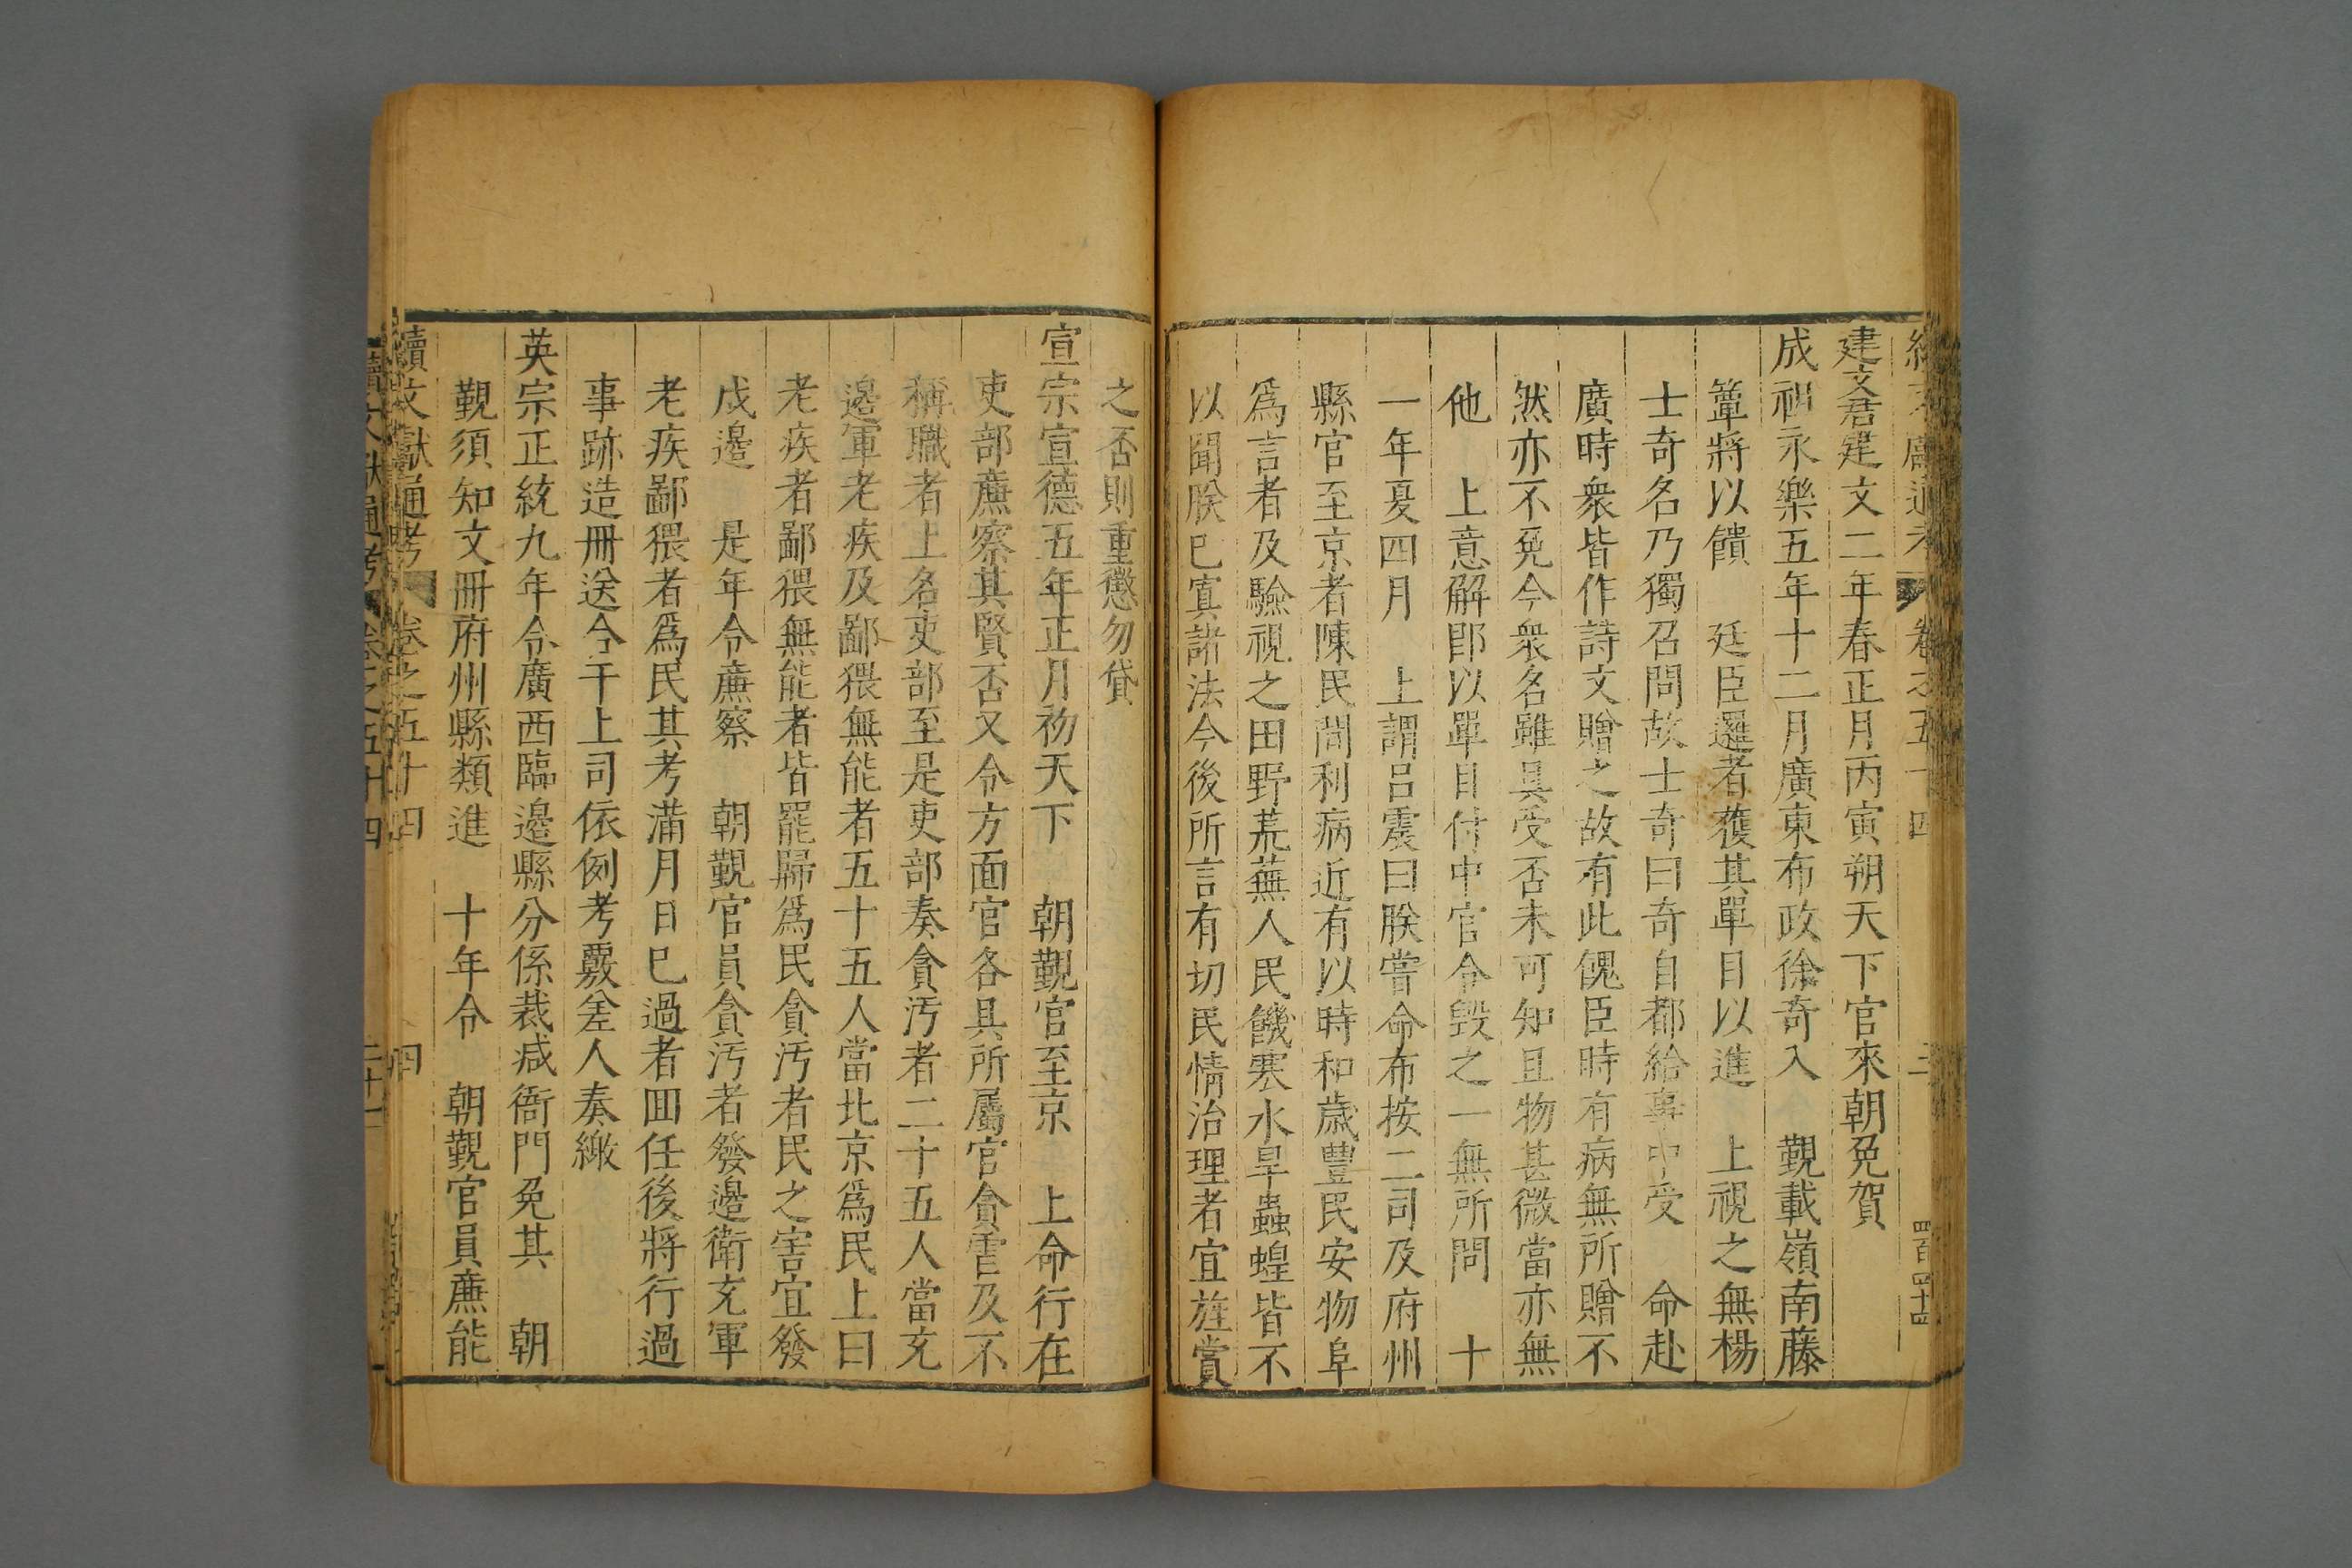 建文君建文二年春正月丙寅朔天下官來朝免賀
成祖永樂五年十二月廣東布政徐奇入　覲載嶺南藤
簟將以饋　廷臣邏者獲其單目以進　上視之無楊
士奇名乃獨召問故士奇曰奇自都給事中受　命赴
廣時衆皆作詩文贈之故有此餽臣時有病無所贈不
然亦不免今衆名雖具受否未可知且物甚微當亦無
他　上意解卽以單目付中官令毀之一無所問　十
一年夏四月　上謂呂震曰朕嘗命布按二司及府州
縣官至京者陳民間利病近有以時和歲豐民安物阜
爲言者及驗視之田野荒蕪人民饑寒水旱蟲蝗皆不
以聞朕已寘諸法今後所言有切民情治理者宜旌賞
之否則重懲勿貸
宣宗宣德五年正月初天下　朝覲官至京　上命行在
吏部廉察其賢否又令方面官各具所屬官貪霍及不
稱職者上名吏部至是吏部奏貪污者二十五人當充
邊軍老疾及鄙猥無能者五十五人當北京爲民上曰
老疾者鄙猥無能者皆罷歸爲民貪汚者民之害宜發
戍邊　是年令廉察　朝覲官員貪汚者發邊衛充軍
老疾鄙猥者爲民其考滿月日巳過者囬任後將行過
事跡造冊送今干上司依例考覈差人奏繳
英宗正統九年令廣西臨邊縣分係裁減衙門免其　朝
覲須知文冊府州縣類進　十年令　朝覲官員廉能
續文獻通考　卷之五十四　四